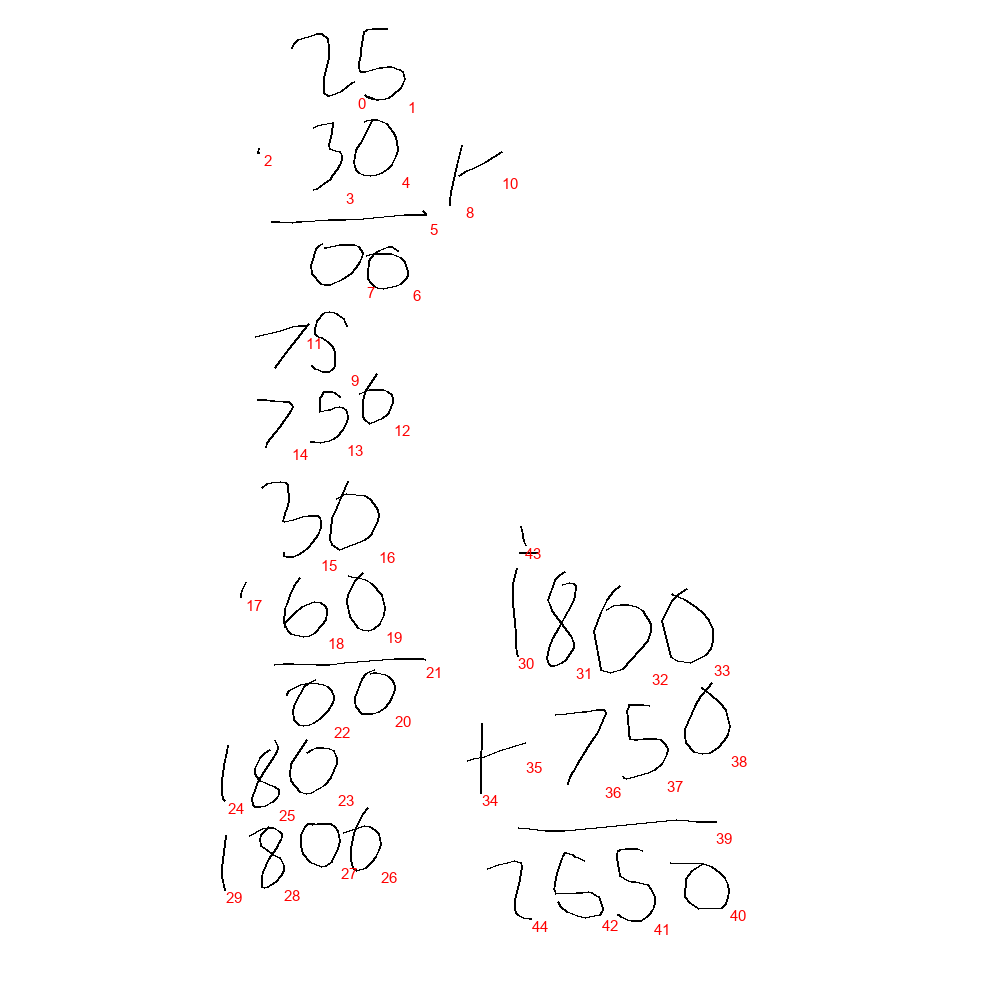 25
0 1
· 30
2 3 4 10 8
5
00
7 6
75
11 9
750
14 13 12
30
15 16
· 60
17 18 19
21
00
22 20
180
24 25 23
1800
29 28 27 26
1
43
1800
30 31 32 33
+ 750
34 35 36 37 38
39
2550
44 42 41 40